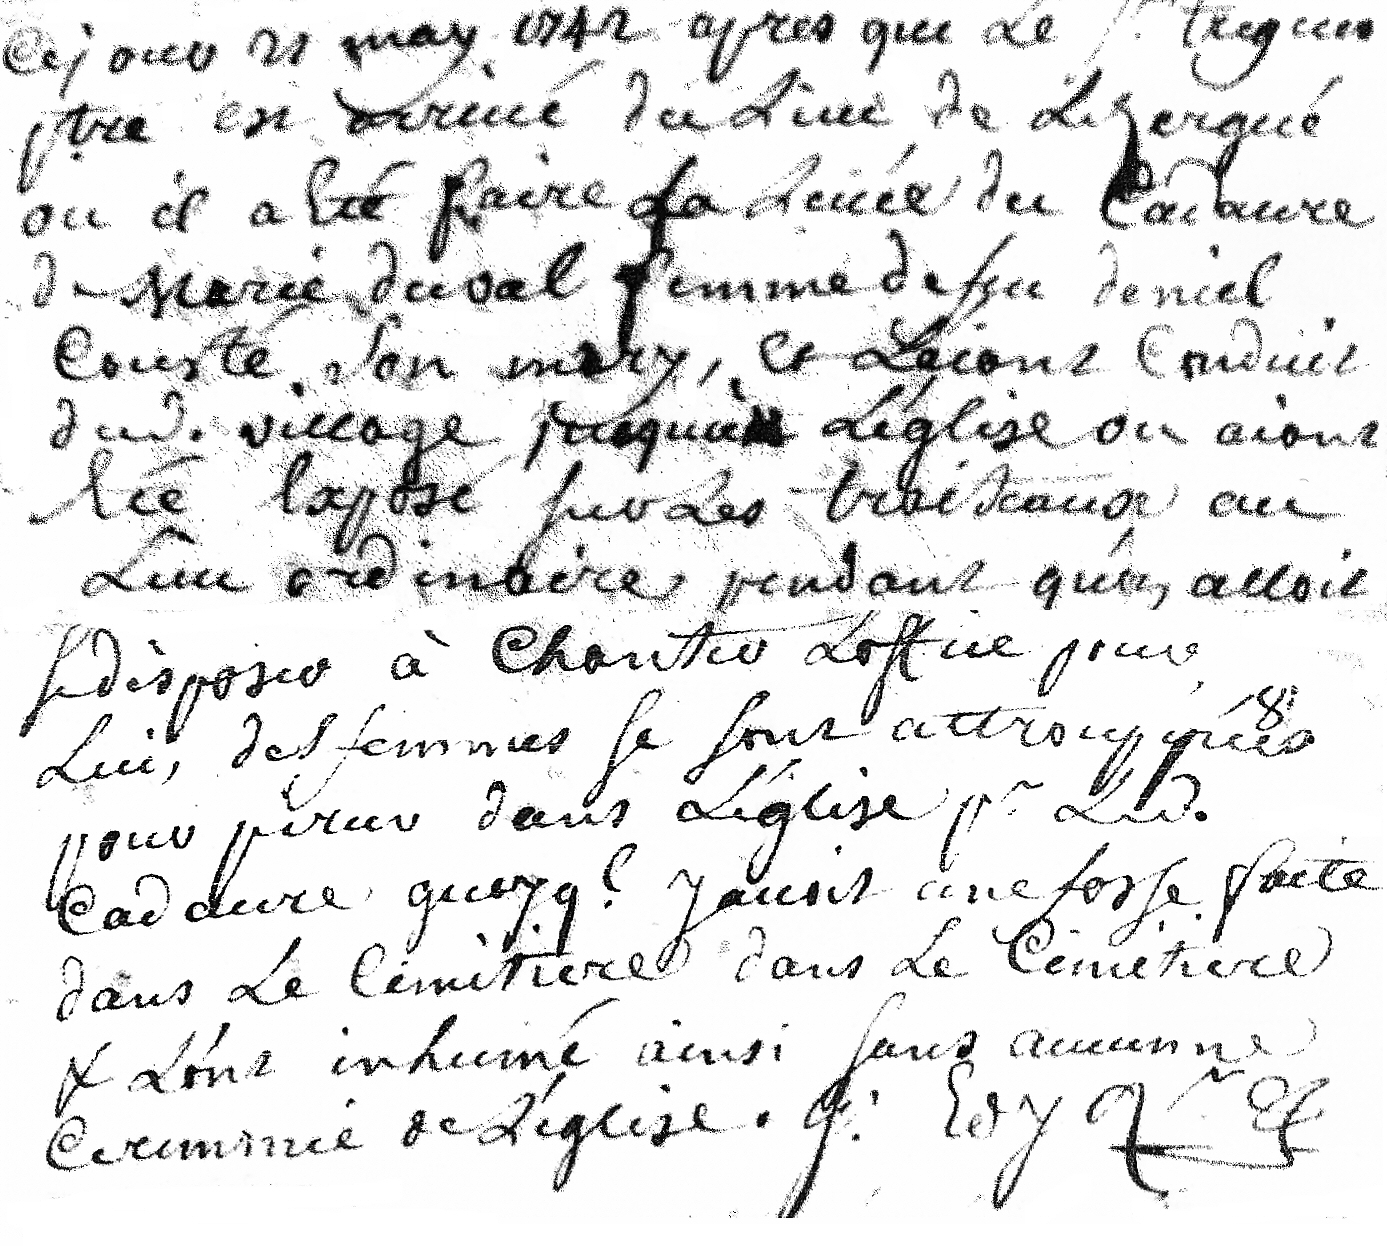 Ce jour 21 may 1742 apres que Le Sr. treguer
ptre est arrivé du Lieu de Lizergué
ou il a été faire La Levée du Cadavre
de Marie duval femme de feu deniel
Cousté son mary, et L'aiant Conduit
dud. village jusqu'à L'église ou aiant
été Exposé sur Les traiteaux au
Lieu ordinaire, pendant qu'on alloit
se disposer à Chanter L'office pour
Lui, des femmes se sont attrouppées
pour percer dans L'église pr Led.
Cadavre quoyq. y avoit une fosse faite
dans Le Cimetiere dans Le Cimetiere
& L'ont inhumé ainsi sans aucunne
Ceremonie de L'église.